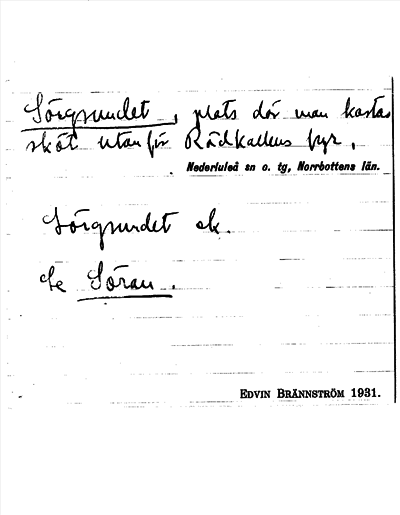 Sörgsundet, plats där man kastar
sköt utanför Rödkallens fyr.
Nederluleå sn o. tg, Norrbottens län.
Sörgsundet ek.
Se Söran.
EDVIN BRÄNNSTRÖM 1931.